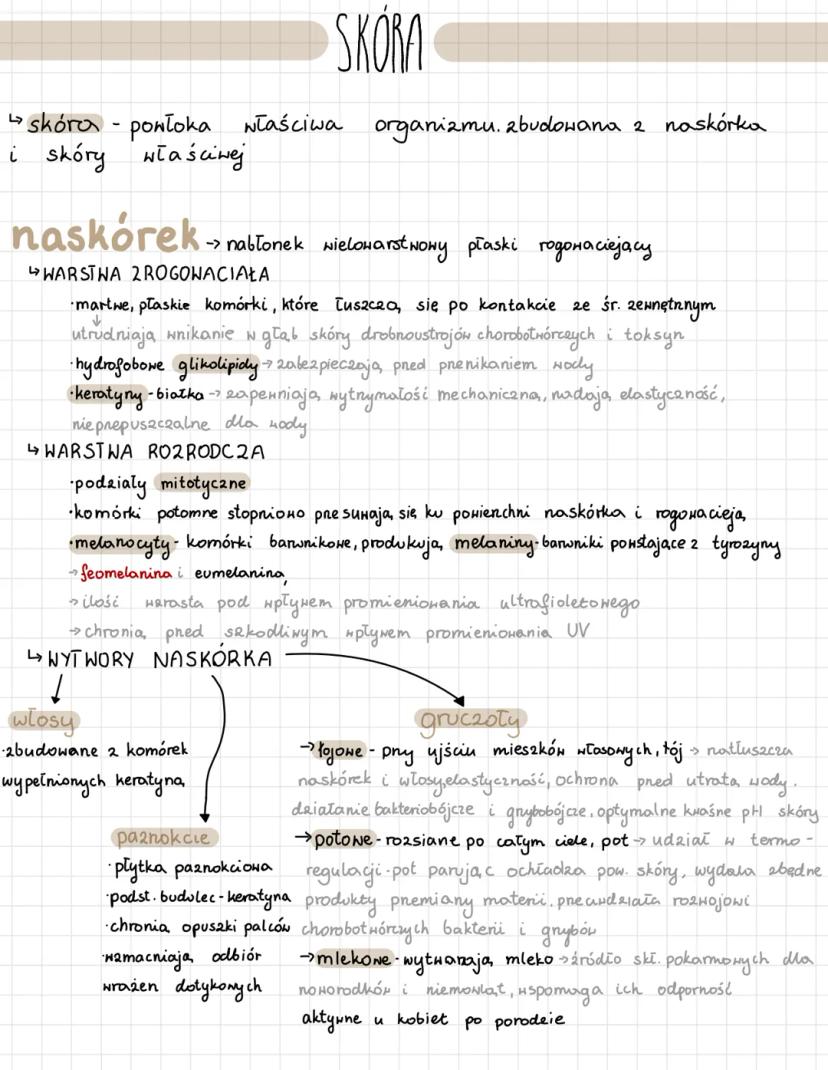 SKÓRA
↳ skóra - powłoka właściwa organizmu. zbudowana z naskórka
i skóry właściwej
naskórek → nabłonek wielowarstwowy płaski rogowaciejący
↳ WARSTWA ZROGOWACIAŁA
·martwe, płaskie komórki, które łuszczą się po kontakcie ze śr. zewnętrznym
utrudniają wnikanie w głąb skóry drobnoustrojów chorobotwórczych i toksyn
·hydrofobowe glikolipidy → zabezpieczają przed przenikaniem wody
·keratyny - białka → zapewniają wytrzymałość mechaniczną, nadają elastyczność,
nieprzepuszczalne dla wody
↳ WARSTWA ROZRODCZA
·podziały mitotyczne
·komórki potomne stopniowo przesuwają się ku powierzchni naskórka i rogowacieją
·melanocyty - komórki barwnikowe, produkują melaniny - barwniki powstające z tyrozyny
→ feomelanina i eumelanina
→ ilość wzrasta pod wpływem promieniowania ultrafioletowego
→ chronią przed szkodliwym wpływem promieniowania UV
↳ WYTWORY NASKÓRKA
włosy
·zbudowane z komórek
wypełnionych keratyną
paznokcie
·płytka paznokciowa
·podst. budulec - keratyna
·chronią opuszki palców
·wzmacniają odbiór
wrażeń dotykowych
gruczoły
→ łojowe - przy ujściu mieszków włosowych, łój → natłuszcza
naskórek i włosy, elastyczność, ochrona przed utratą wody.
działanie bakteriobójcze i grzybobójcze, optymalne kwaśne pH skóry
→ potowe - rozsiane po całym ciele, pot → udział w termo -
regulacji · pot parując ochładza pow. skóry, wydala zbędne
produkty przemiany materii, przeciwdziała rozwojowi
chorobotwórczych bakterii i grzybów
→ mlekowe - wytwarzają mleko → źródło skł. pokarmowych dla
noworodków i niemowląt, wspomaga ich odporność
aktywne u kobiet po porodzie